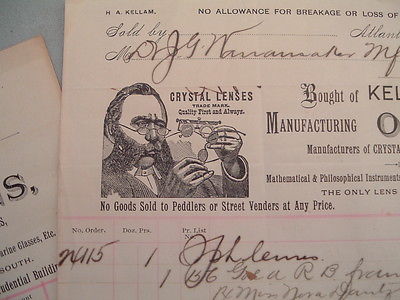 H. A. KELLAM.
NO ALLOWANCE FOR BREAKAGE OR LOSS OF
Sold by
Atlanta
M Dr J. G. Wanamaker
CRYSTAL LENSES
TRADE MARK.
Quality First and Always.
Bought of KEL
MANUFACTURING O
Manufacturers of CRYSTA
Mathematical & Philosophical Instruments
THE ONLY LENS
No Goods Sold to Peddlers or Street Venders at Any Price.
S,
arine Glasses, Etc.
SOUTH.
rudential Building
No. Order. Doz. Prs. Pr. List No.
24115 1 Sph lenses
1 R B fram
Miss Nora